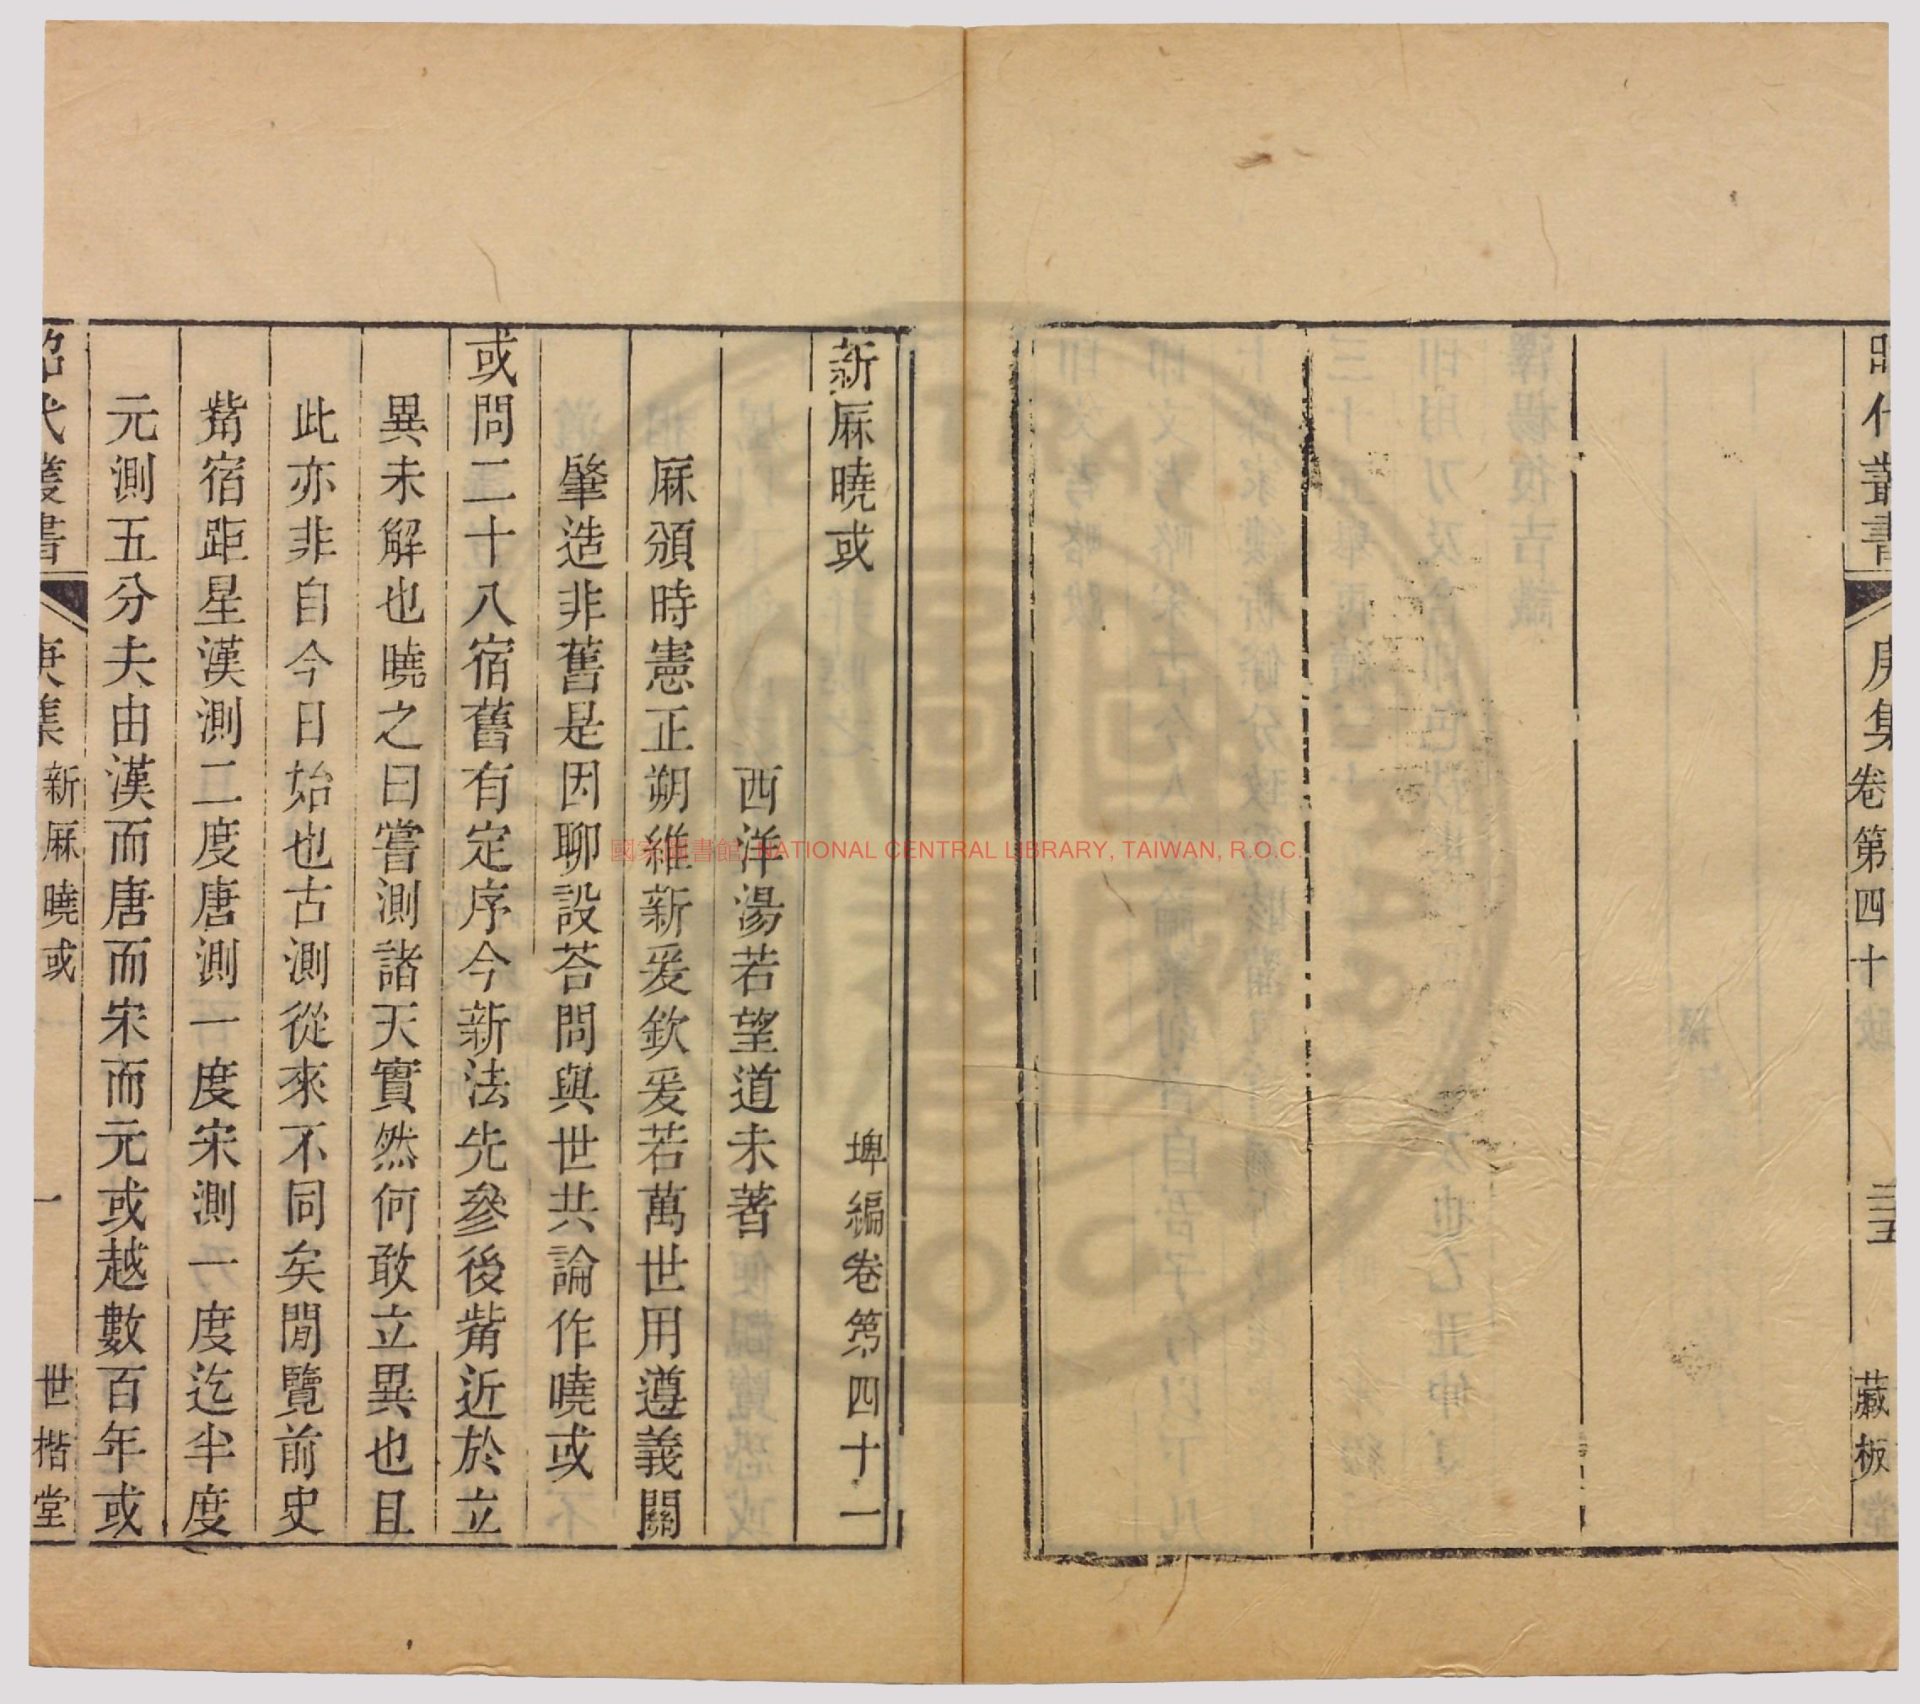 昭代叢書
庚集
卷第四十
三五
藏板
新厤曉或
埤編卷第四十一
西洋湯若望道未著
厤頒時憲正朔維新爰欽爰若萬世用遵義關
肇造非舊是因聊設荅問與世共論作曉或
或問二十八宿舊有定序今新法先參後觜近於立
異未解也曉之曰嘗測諸天實然何敢立異也且
此亦非自今日始也古測從來不同矣閒覽前史
觜宿距星漢測二度唐測一度宋測一度迄半度
元測五分夫由漢而唐而宋而元或越數百年或
昭代叢書
庚集
新厤曉或
一
世楷堂
國家圖書館 NATIONAL CENTRAL LIBRARY, TAIWAN, R.O.C.